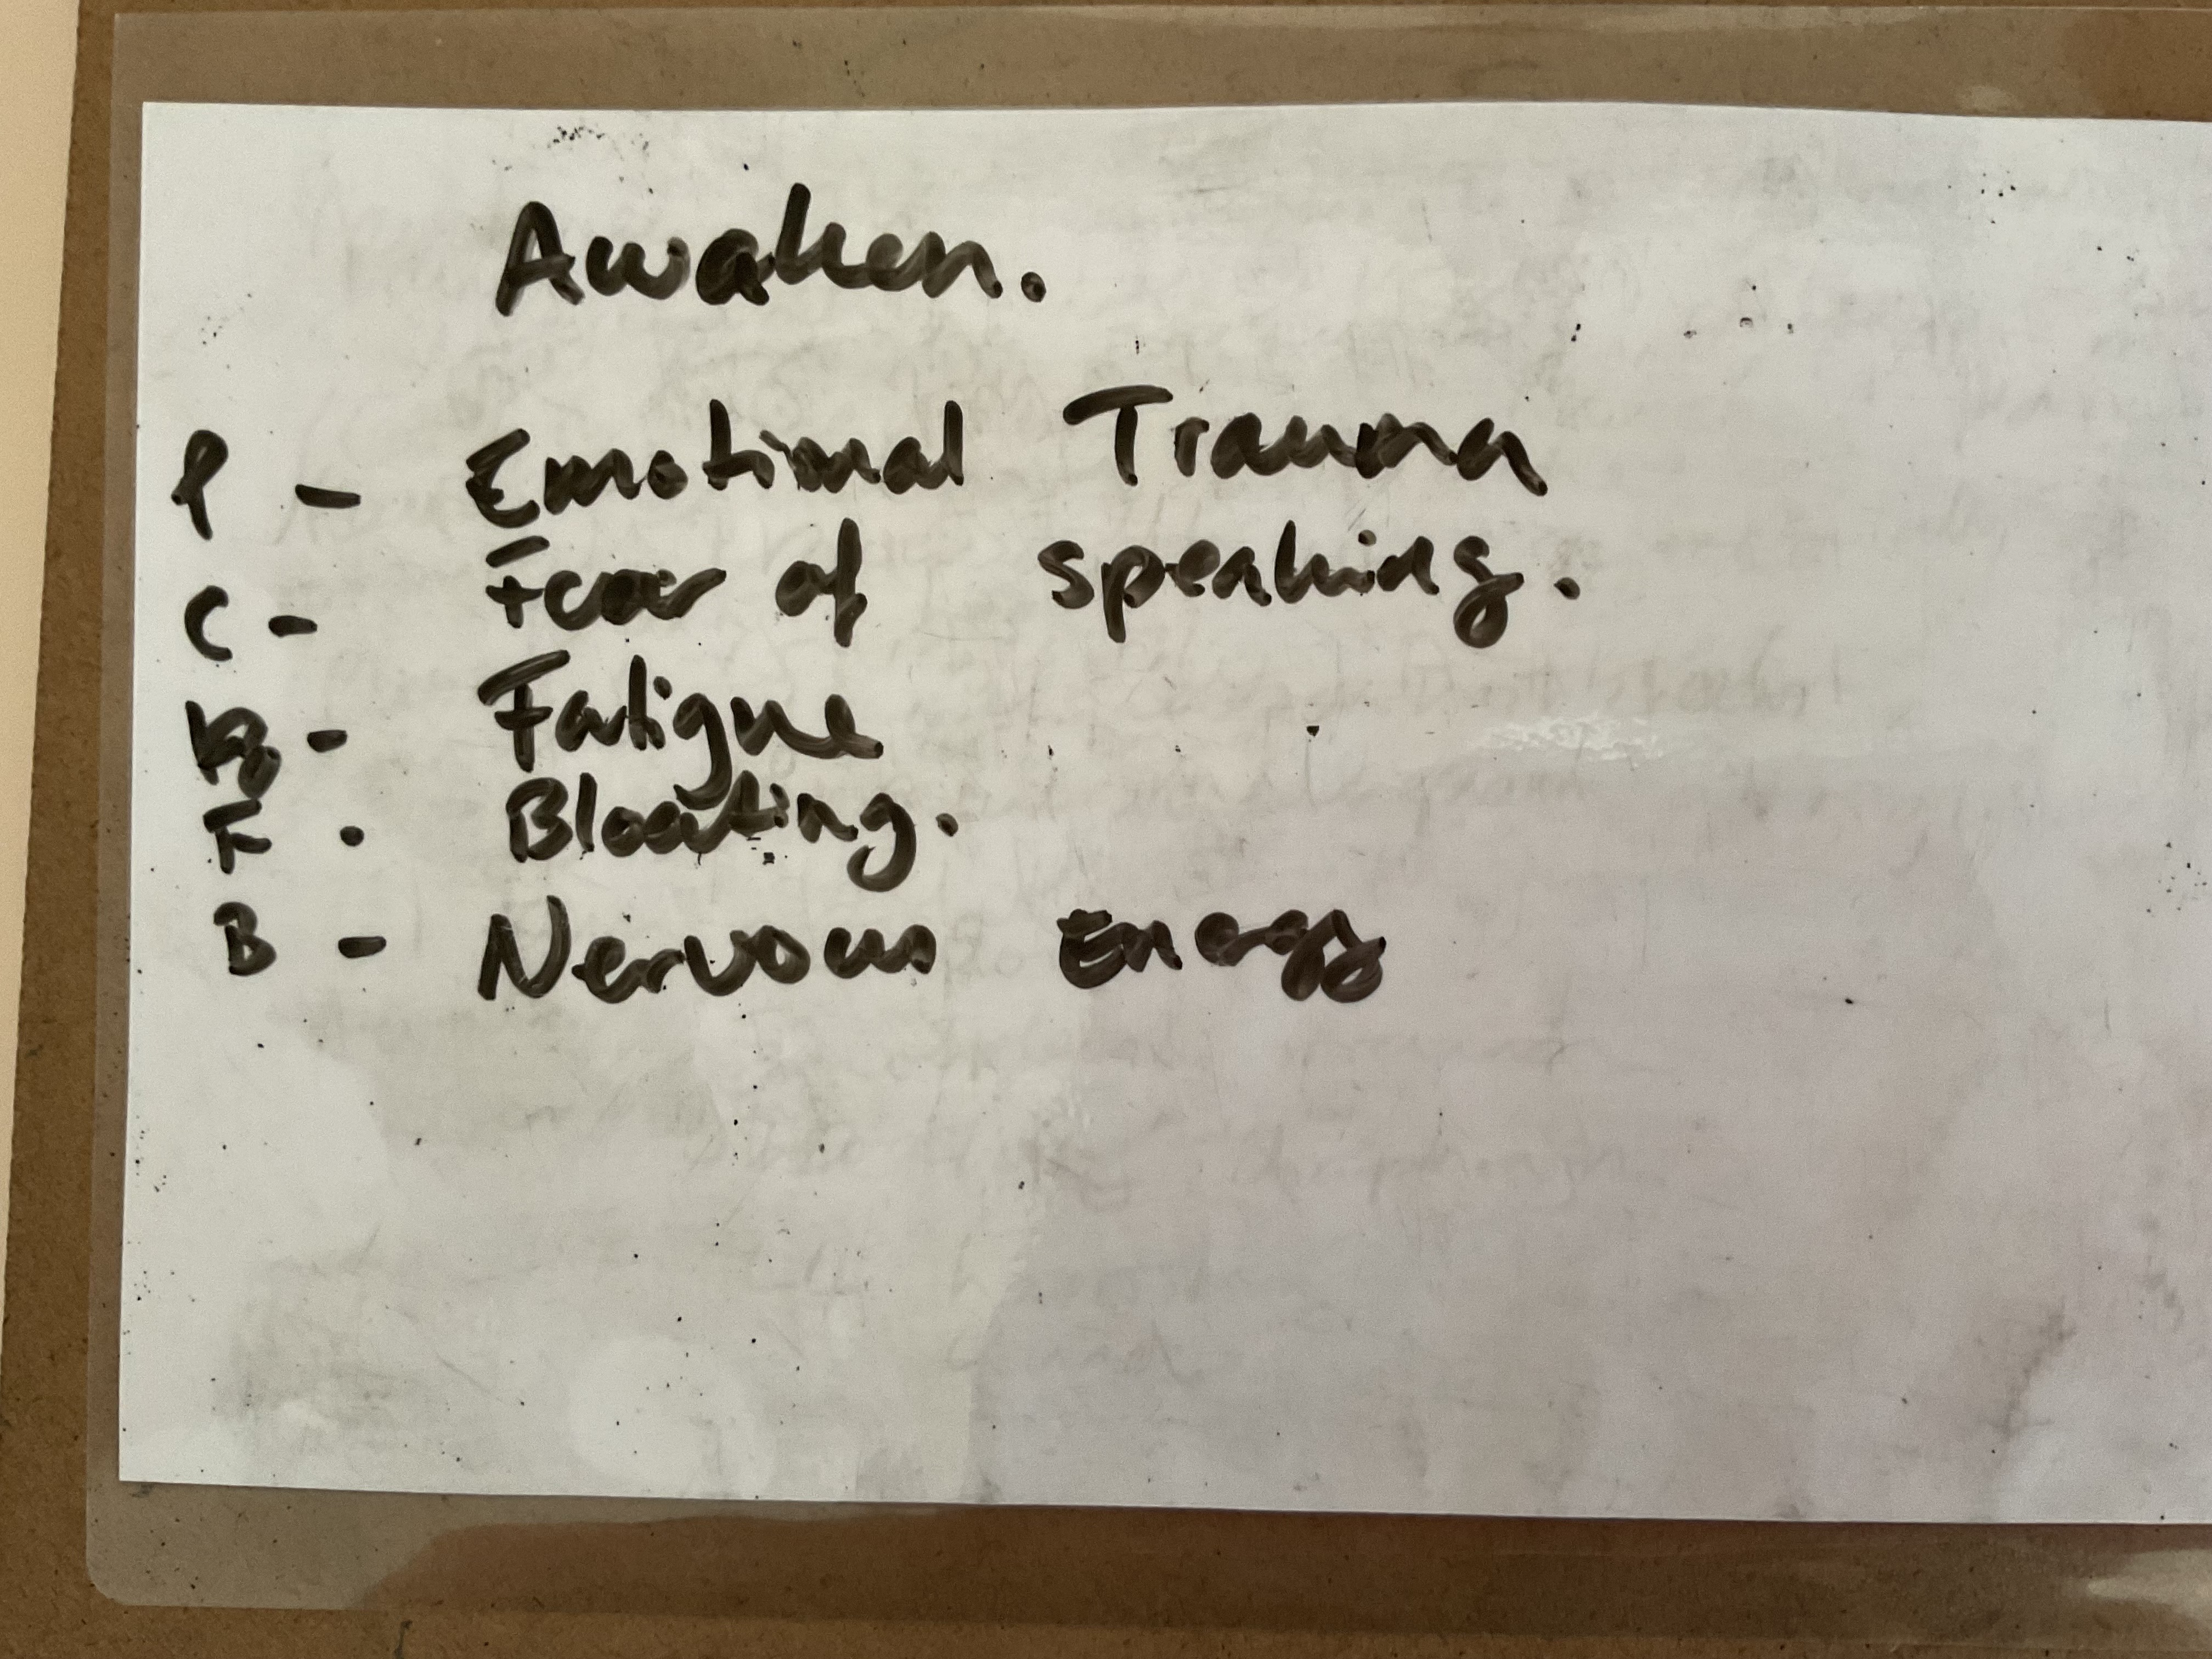 Awaken.
P - Emotional Trauma
C - Fear of speaking.
- Fatigue
F . Bloating.
B - Nervous Energy